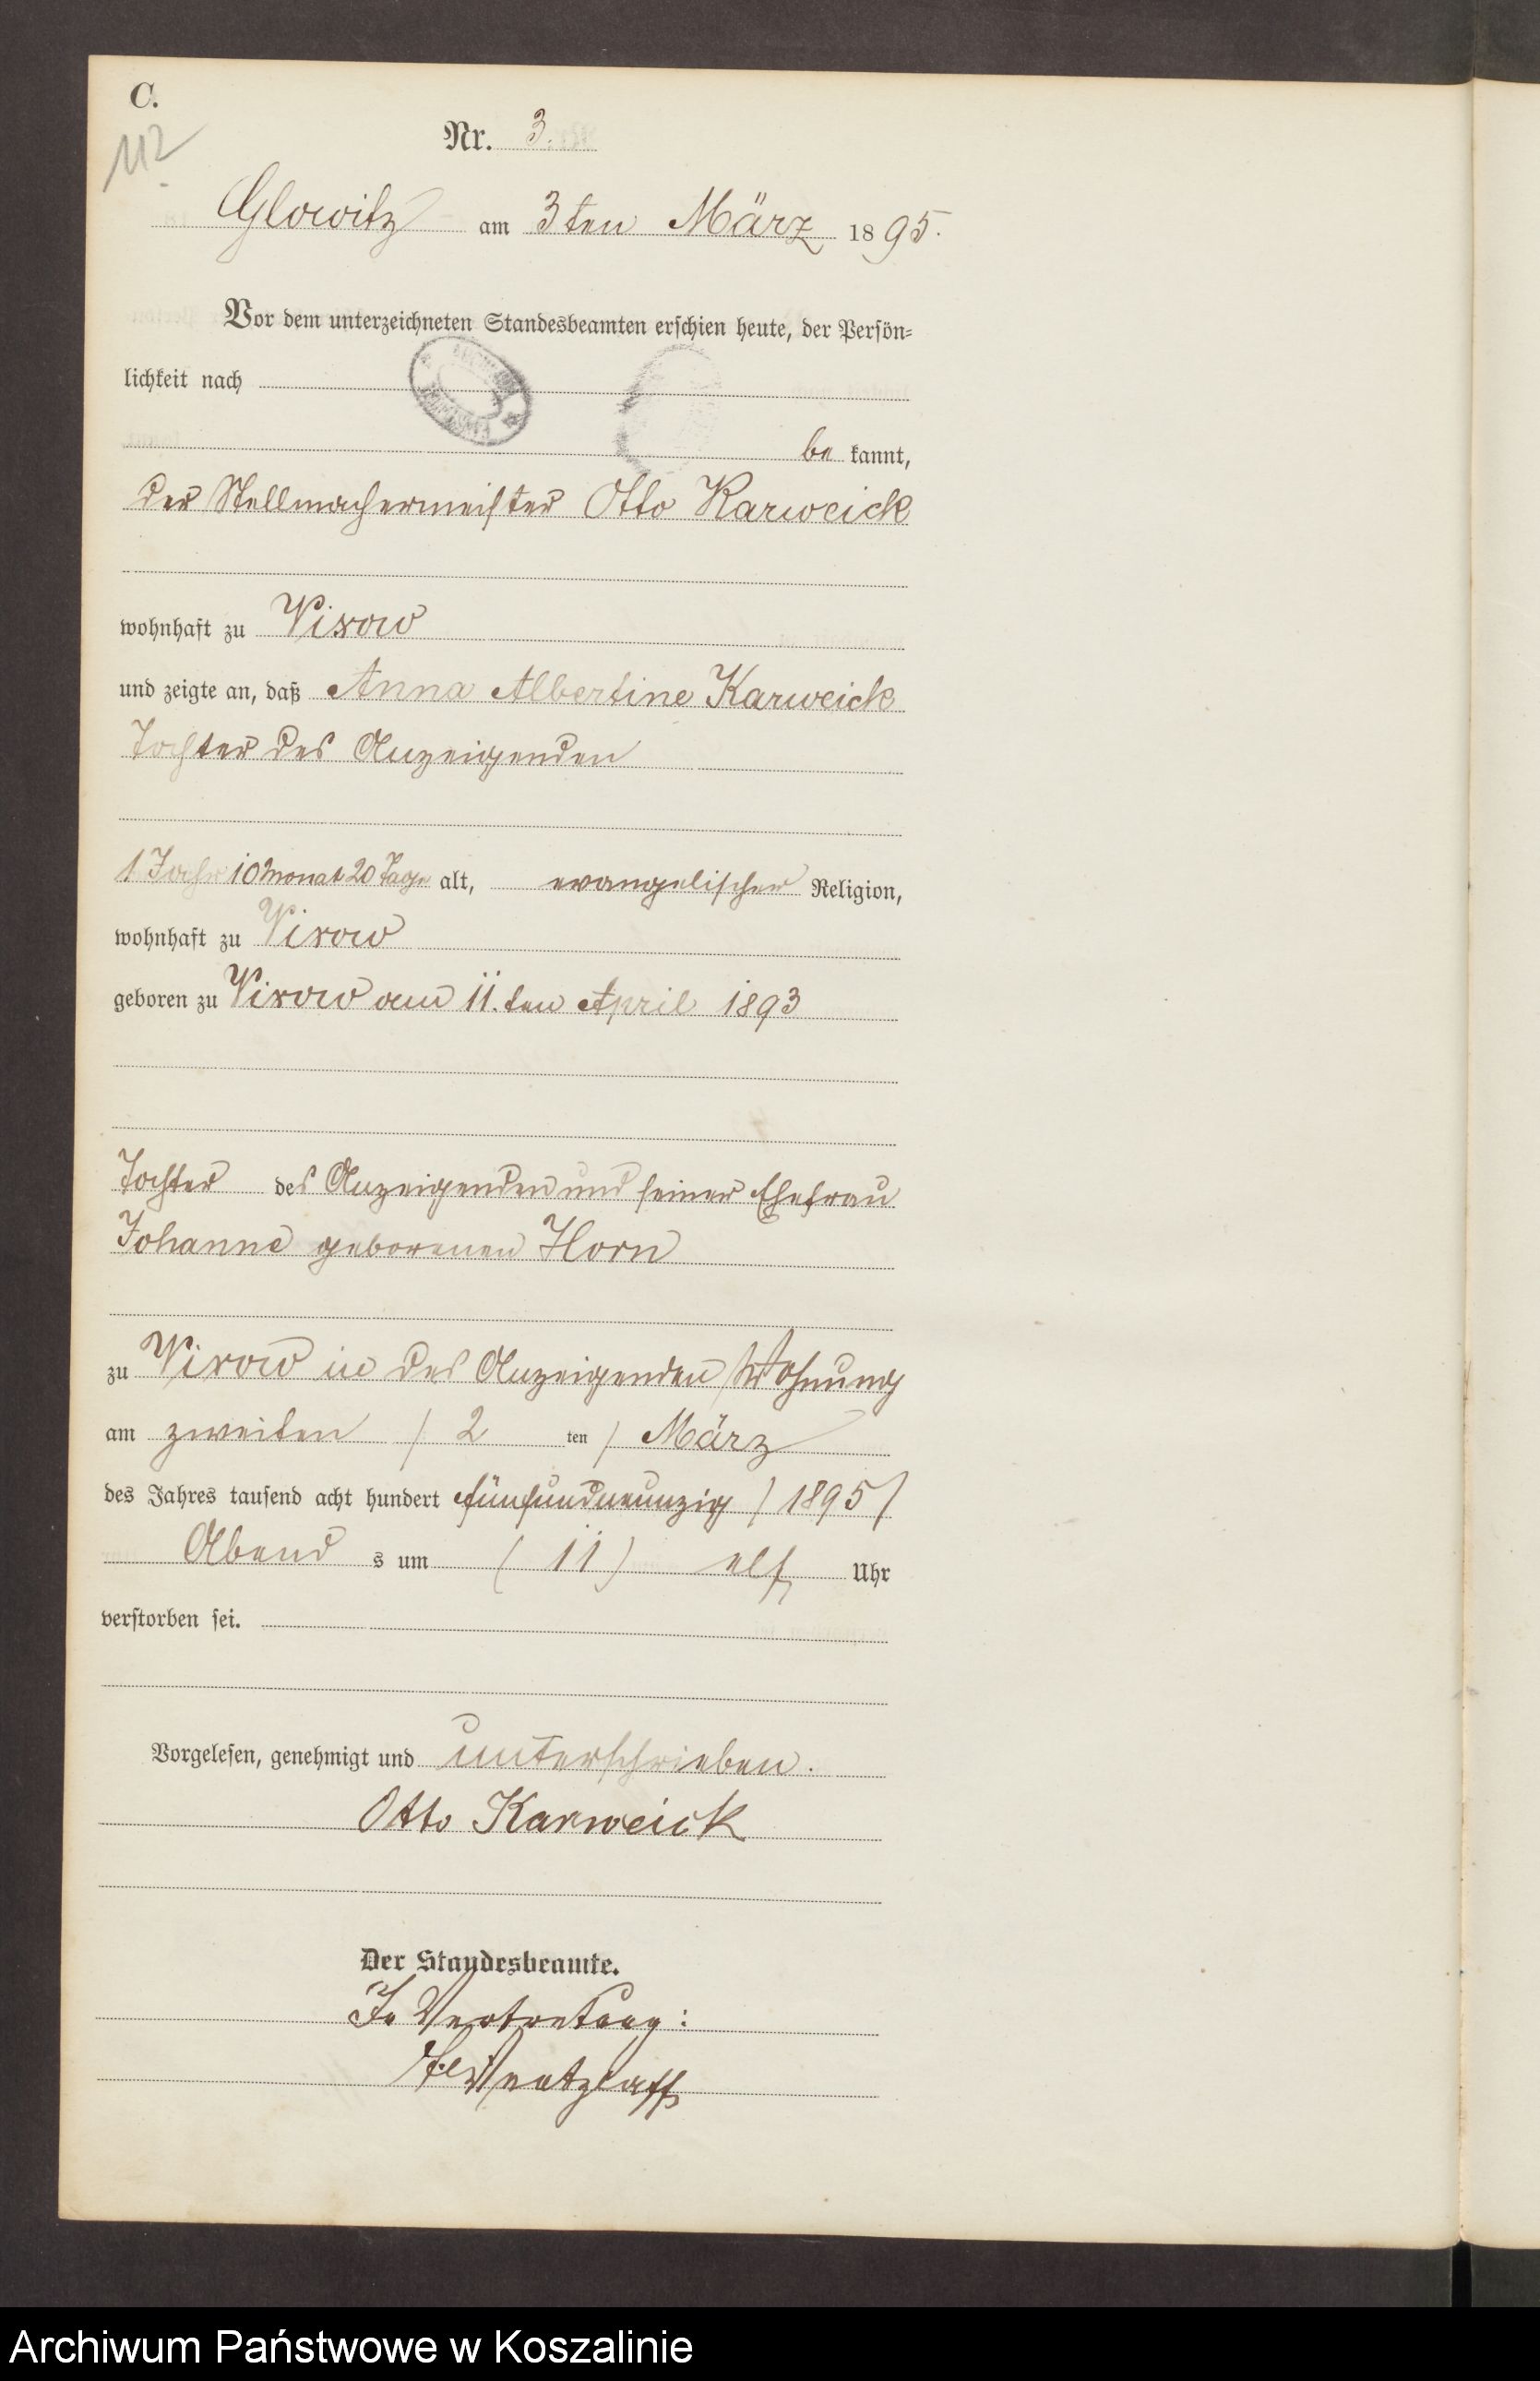 C.
112
Nr. 3.
Glowitz am 3ten März 1895.
Vor dem unterzeichneten Standesbeamten erschien heute, der Persön-
lichkeit nach
be kannt,
der Stellmachermeister Otto Karweick
wohnhaft zu Vixow
und zeigte an, daß Anna Albertine Karweick
Tochter des Anzeigenden
1 Jahr 10 Monat 20 Tage alt, evangelischer Religion,
wohnhaft zu Vixow
geboren zu Vixow am 11.ten April 1893
Tochter des Anzeigenden und seiner Ehefrau
Johanne geborenen Horn
zu Vixow in des Anzeigenden Wohnung
am zweiten / 2 ten / März
des Jahres tausend acht hundert fünfundneunzig / 1895 /
Abend s um ( 11 ) elf Uhr
verstorben sei.
Vorgelesen, genehmigt und unterschrieben.
Otto Karweick
Der Standesbeamte.
In Vertretung:
Archiwum Państwowe w Koszalinie